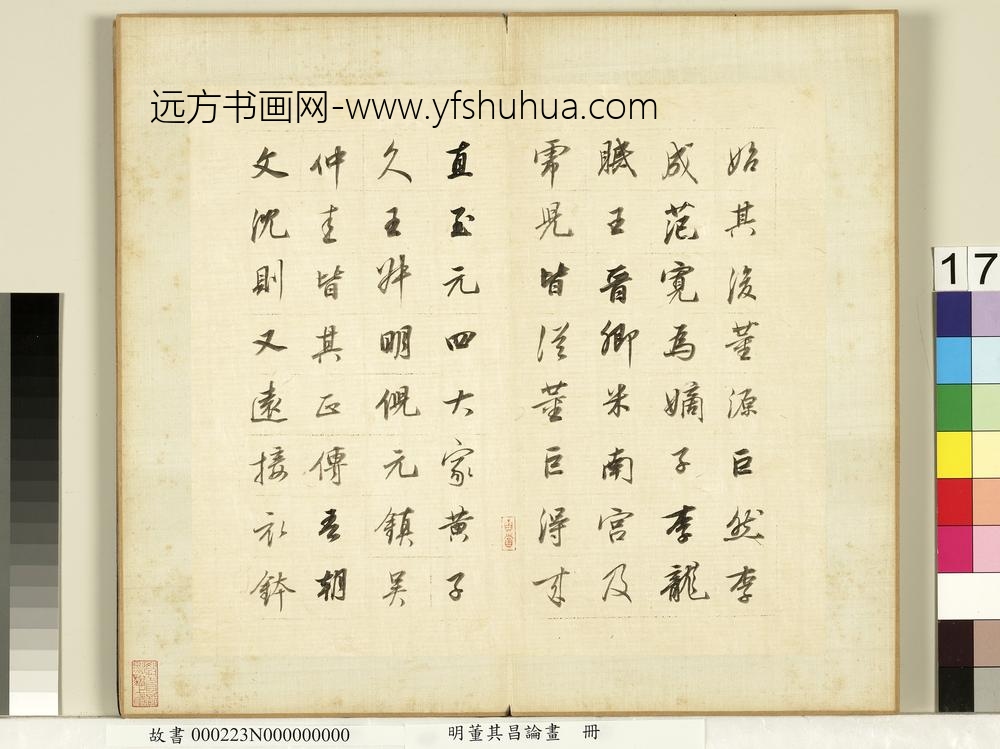 远方书画网-www.yfshuhua.com
始其後董源巨然李
成范寬為嫡子李龍
眠王晉卿米南宮及
虎兒皆從董巨得來
直至元四大家黃子
久王叔明倪元鎮吳
仲圭皆其正傳吾朝
文沈則又遠接衣鉢
17
故書 000223N000000000
明董其昌論畫 冊